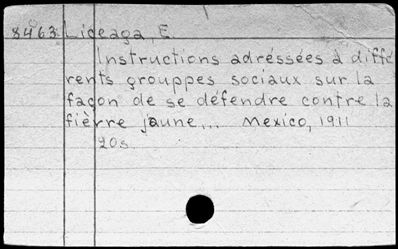 8463 Liceaga, E.
Instructions adréssées à diffé
rents grouppes sociaux sur la
façon de se défendre contre la
fièvre jaune... Mexico, 1911
20s